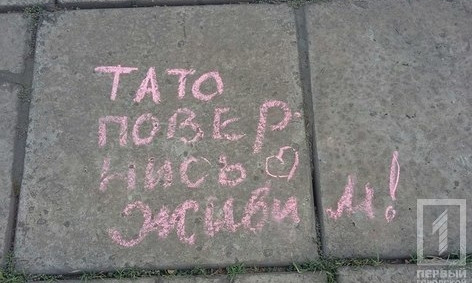 ТАТО
ПОВЕР-
НИСЬ♡
ЖИВИМ!
1
ПЕРВЫЙ
ГОРОДСКОЙ